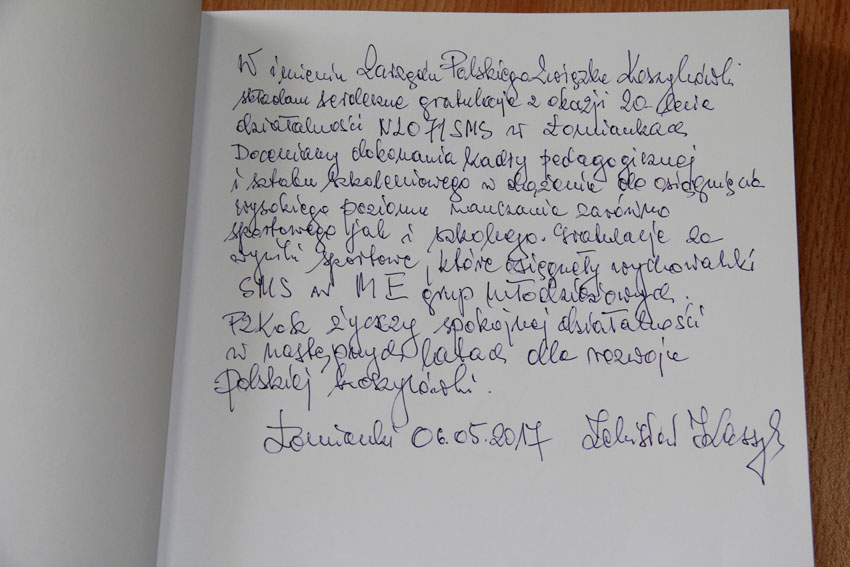 W imieniu Zarządu Polskiego Związku Koszykówki
składam serdeczne gratulacje z okazji 20-lecia
działalności NLO71SMS w Łomiankach
Doceniamy dokonania kadry pedagogicznej
i sztabu szkoleniowego w dążeniu do osiągnięcia
wysokiego poziomu nauczania zarówno
sportowego jak i szkolnego. Gratulacje za
wyniki sportowe, które osiągnęły wychowanki
SMS w ME grup młodzieżowych.
PZKosz życzy spokojnej działalności
w następnych latach dla rozwoju
Polskiej koszykówki.
Łomianki 06.05.2017